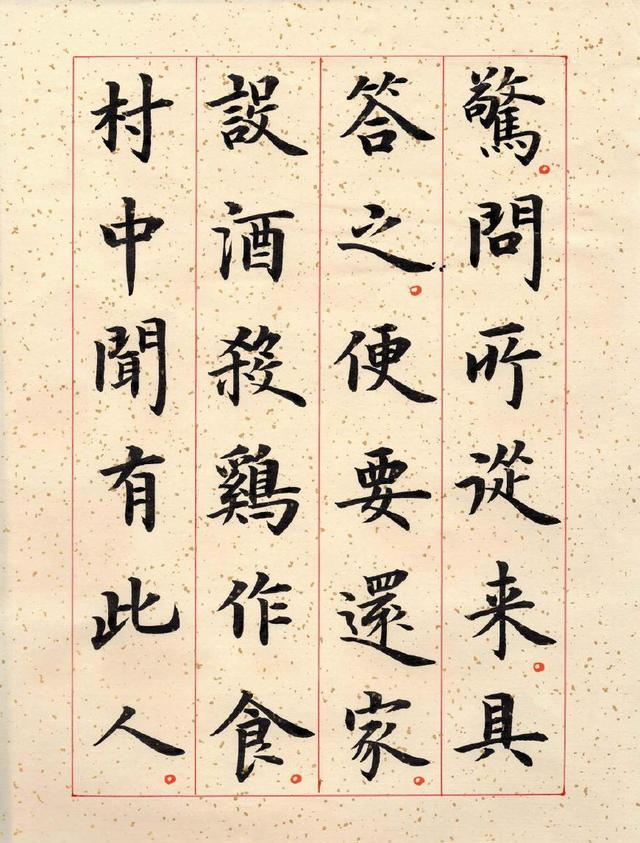 驚問所從来具
答之便要還家
設酒殺鷄作食
村中聞有此人